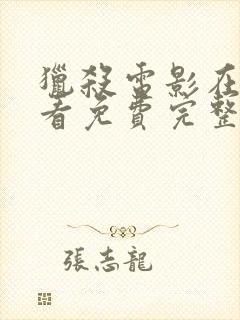 獵殺雷影在
看免費完整
張志龍